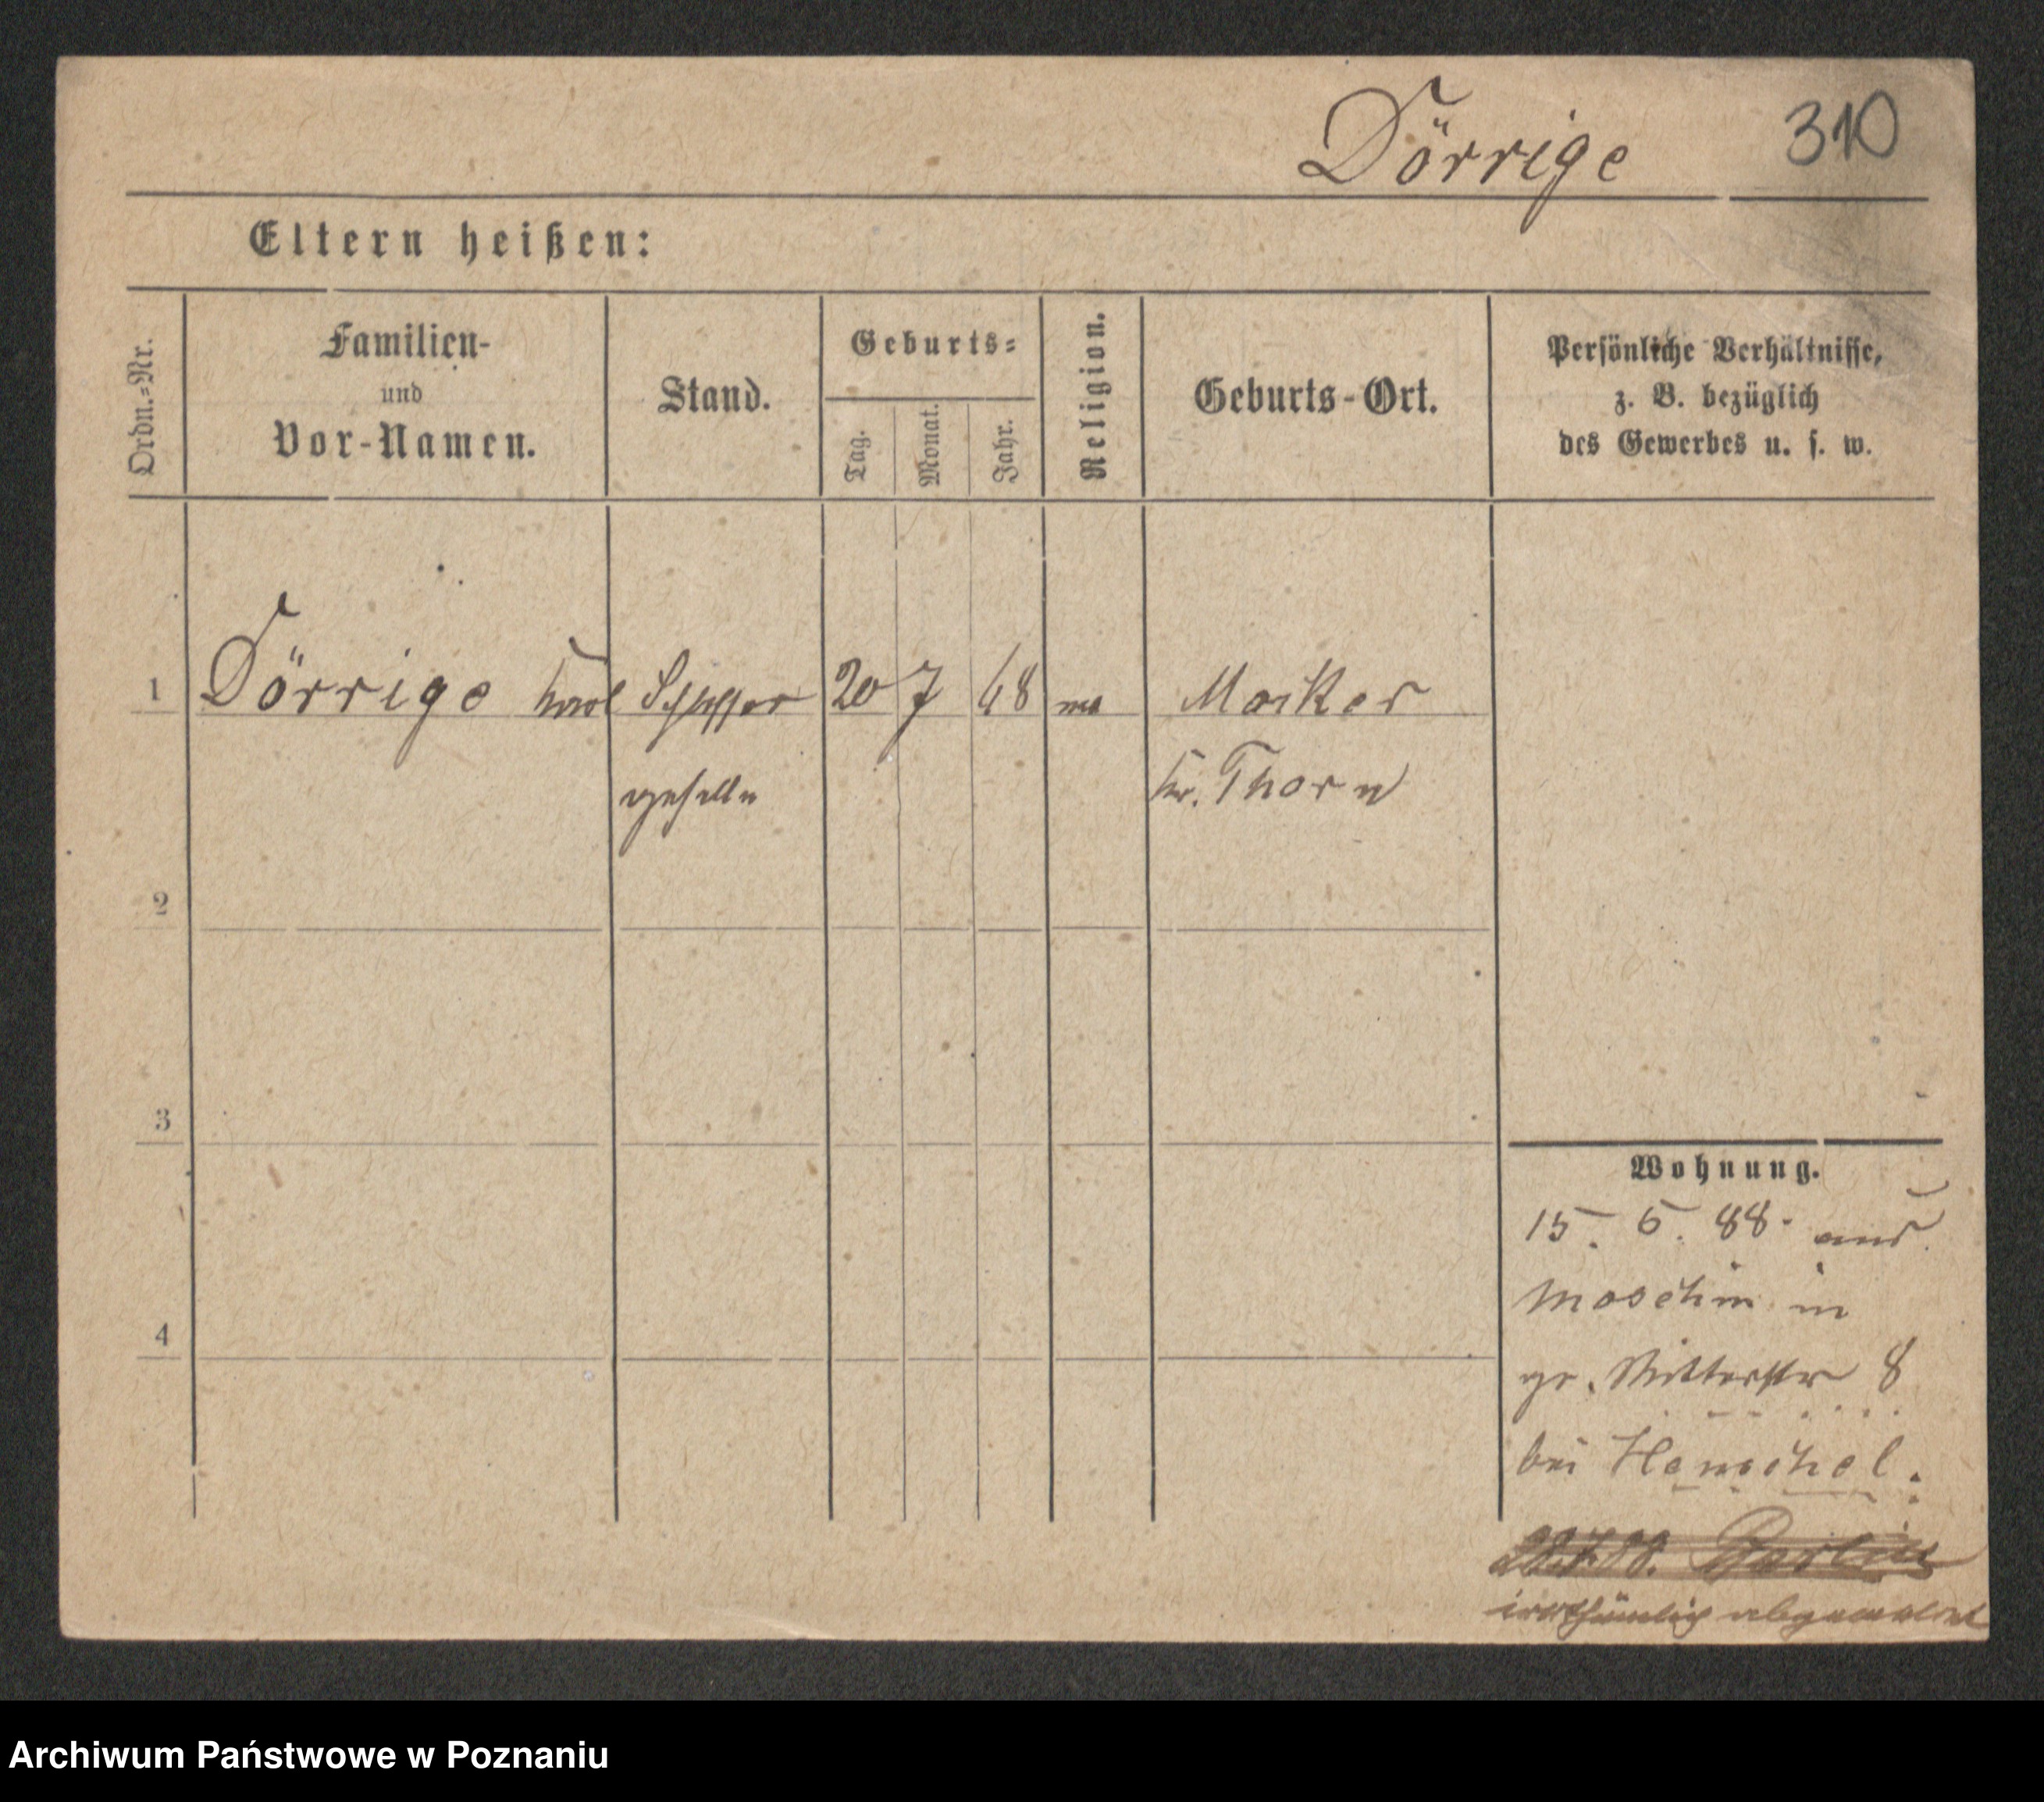 Dörrige 310
Eltern heißen:
Ordn.-Nr.
Familien-
und
Vor-Namen.
Stand.
Geburts-
Tag.
Monat.
Jahr.
Religion.
Geburts-Ort.
Persönliche Verhältnisse,
z. B. bezüglich
des Gewerbes u. s. w.
1 Dörrige Karl Schlosser 20 7 68 Mocker
geselle Kr. Thorn
2
3
4
Wohnung.
15. 5. 88. aus
Moschin in
gr. Ritterstr 8
bei Henschel.
28.7.88. Berlin
irrthümlich abgemeldet
Archiwum Państwowe w Poznaniu